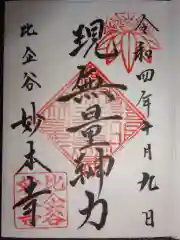 令和四年十月九日
現無量神力
比企谷
妙本寺